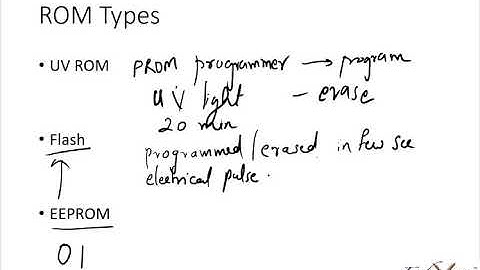 ROM Types
• UV ROM PROM programmer → program
UV light - erase
20 min
• Flash programmed/erased in few sec
electrical pulse.
• EEPROM
01